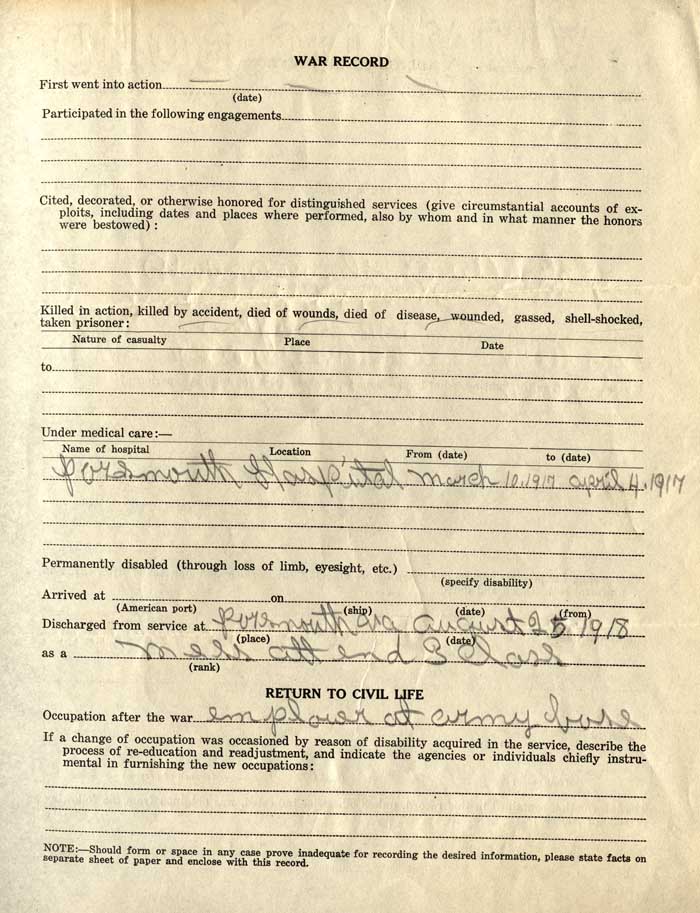 WAR RECORD
First went into action
(date)
Participated in the following engagements
Cited, decorated, or otherwise honored for distinguished services (give circumstantial accounts of ex-
ploits, including dates and places where performed, also by whom and in what manner the honors
were bestowed) :
Killed in action, killed by accident, died of wounds, died of disease, wounded, gassed, shell-shocked,
taken prisoner:
Nature of casualty Place Date
to
Under medical care:—
Name of hospital Location From (date) to (date)
Porsmouth Hospital March 10, 1917 april 4, 1917
Permanently disabled (through loss of limb, eyesight, etc.)
(specify disability)
Arrived at on
(American port) (ship) (date) (from)
Discharged from service at Porsmouth Va August 25 1918
(place) (date)
as a Mess att end 3 Class
(rank)
RETURN TO CIVIL LIFE
Occupation after the war emploier at army base
If a change of occupation was occasioned by reason of disability acquired in the service, describe the
process of re-education and readjustment, and indicate the agencies or individuals chiefly instru-
mental in furnishing the new occupations:
NOTE:—Should form or space in any case prove inadequate for recording the desired information, please state facts on
separate sheet of paper and enclose with this record.